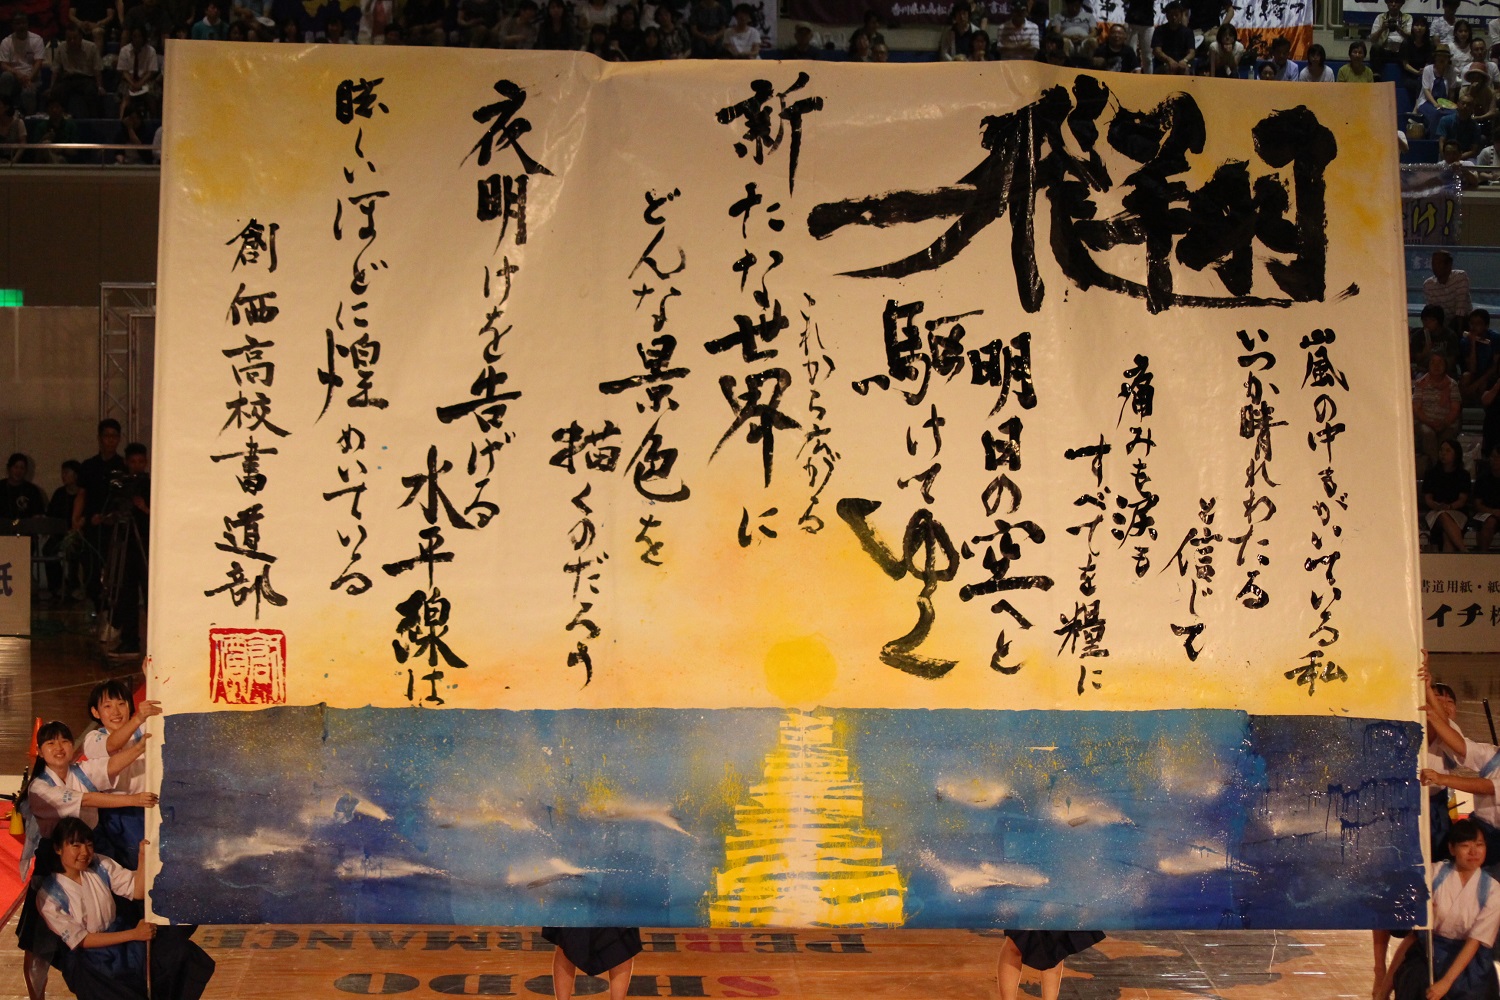 飛翔
嵐の中もがいている私
いつか晴れわたる
と信じて
痛みも涙も
すべてを糧に
明日の空へと
駆けてゆく
これから広がる
新たな世界に
どんな景色を
描くのだろう
夜明けを告げる
水平線は
眩いほどに煌めいている
創価高校書道部
書道用紙・紙
イチ
紙
け!
SHODO
PERFORMANCE